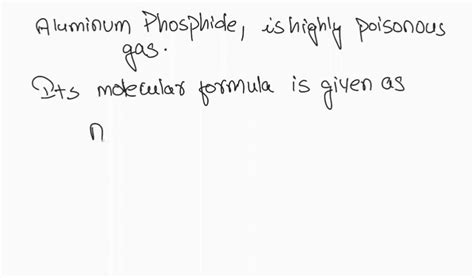 Aluminum Phosphide, is highly poisonous
gas.
Its molecular formula is given as